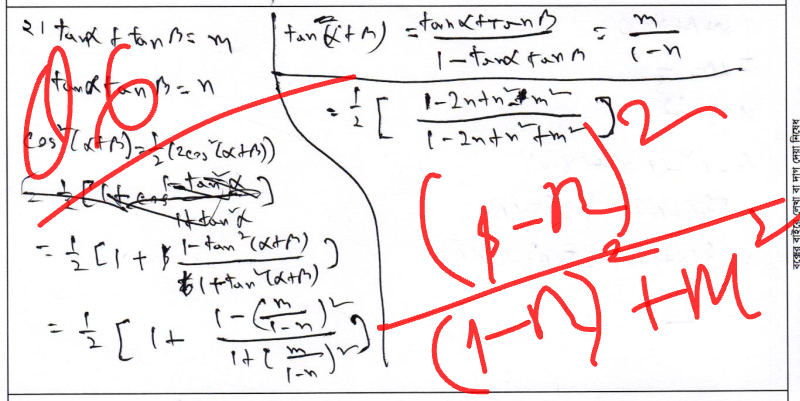 21 tanα + tanβ = m
tanα tanβ = n
cos²(α+β) = 1/2 (2cos²(α+β))
= 1/2 [1 + 1-tan²(α+β) / 1+tan²(α+β)]
= 1/2 [1 + 1-(m/1-n)² / 1+(m/1-n)²]
tan(α+β) = tanα+tanβ / 1-tanα tanβ = m / 1-n
= 1/2 [1-2n+n² m² / 1-2n+n²+m²]
(1-n)² / (1-n)² + m²
বক্সের বাইরে লেখা বা দাগ দেয়া নিষেধ